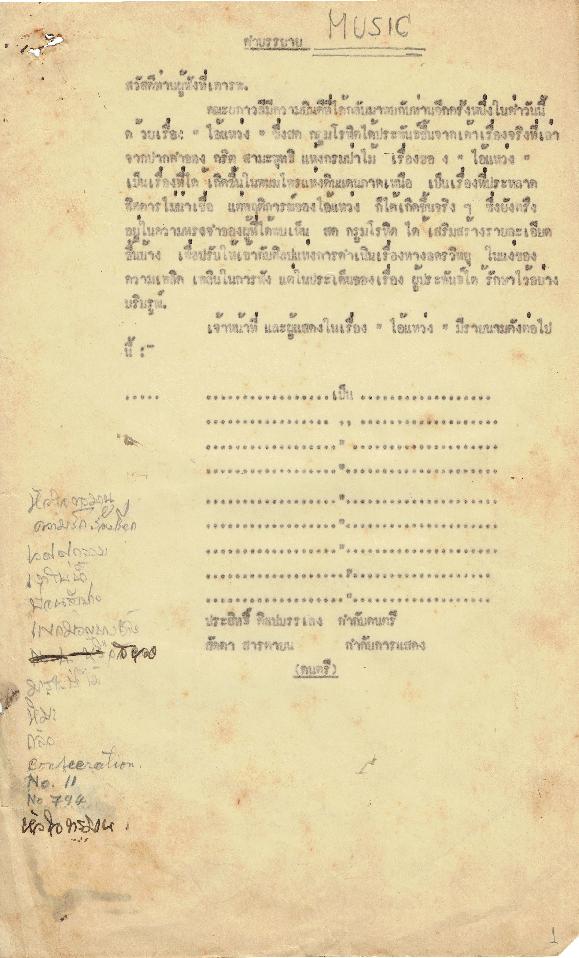 MUSIC
คำบรรยาย
สวัสดีท่านผู้ฟังที่เคารพ.
คณะยกาวลีมีความยินดีที่ได้กลับมาพบกับท่านอีกครั้งหนึ่งในค่ำวันนี้
ด้วยเรื่อง " ไอ้แหว่ง " ซึ่งสด กูรมโรหิตได้ประพันธ์ขึ้นจากเค้าเรื่องจริงที่เล่า
จากปากคำของ กริต สามะพุทธิ แห่งกรมป่าไม้ เรื่องของ " ไอ้แหว่ง "
เป็นเรื่องที่ได้ เกิดขึ้นในพนมไพรแห่งดินแดนภาคเหนือ เป็นเรื่องที่ประหลาด
พิศดารไม่น่าเชื่อ แต่พฤติการณ์ของไอ้แหว่ง ก็ได้เกิดขึ้นจริง ๆ ซึ่งยังตรึง
อยู่ในความทรงจำของผู้ที่ได้พบเห็น สด กูรมโรหิต ได้ เสริมสร้างรายละเอียด
ขึ้นบ้าง เพื่อปรับให้เข้ากับศิลปแห่งการดำเนินเรื่องทางละครวิทยุ ในแง่ของ
ความเพลิด เพลินในการฟัง แต่ในประเด็นของเรื่อง ผู้ประพันธ์ได้ รักษาไว้อย่าง
บริบูรณ์.
เจ้าหน้าที่ และผู้แสดงในเรื่อง " ไอ้แหว่ง " มีรายนามดังต่อไป
นี้ :-
..... ....................เป็น .....................
.................... ,, .....................
....................".....................
....................".....................
....................".....................
....................".....................
....................".....................
....................".....................
....................".....................
ประสิทธิ์ ศิลปบรรเลง กำกับดนตรี
ลัดดา สารตายน กำกับการแสดง
(ดนตรี)
หัวใจทรมาน
Consecration.
No. 11
No 794
หัวใจทรมาน.
1